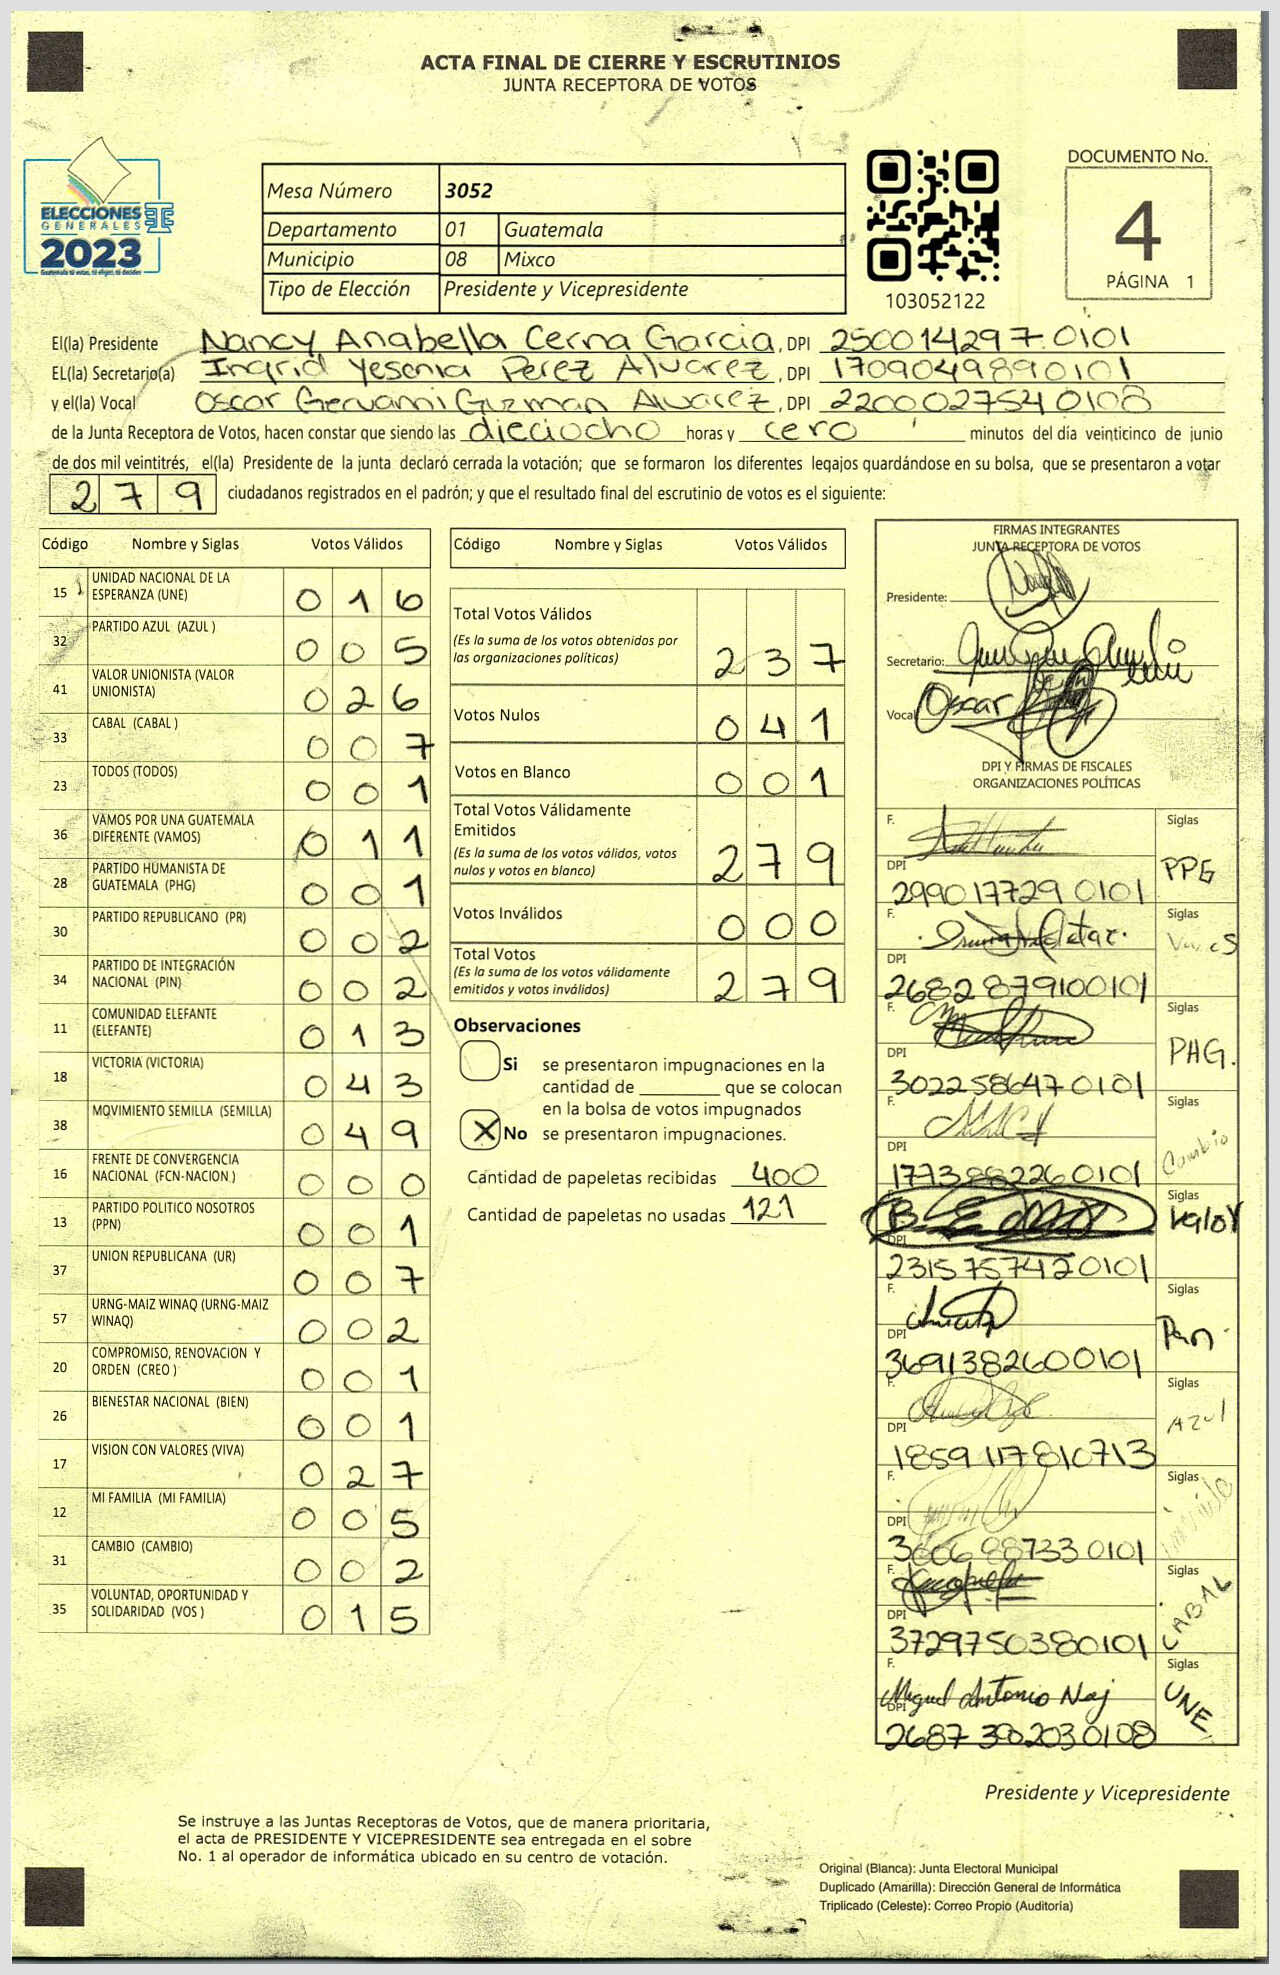 ACTA FINAL DE CIERRE Y ESCRUTINIOS
JUNTA RECEPTORA DE VOTOS
ELECCIONES
GENERALES
2023
Guatemala tú votas, tú eliges, tú decides
Mesa Número 3052
Departamento 01 Guatemala
Municipio 08 Mixco
Tipo de Elección Presidente y Vicepresidente
103052122
DOCUMENTO No.
4
PÁGINA 1
El(la) Presidente Nancy Anabella Cerna Garcia, DPI 250014297 0101
EL(la) Secretario(a) Ingrid Yesenia Perez Alvarez, DPI 1709049890101
y el(la) Vocal Oscar Geovanni Guzman Alvarez, DPI 220002754 0108
de la Junta Receptora de Votos, hacen constar que siendo las dieciocho horas y cero minutos del día veinticinco de junio
de dos mil veintitrés, el(la) Presidente de la junta declaró cerrada la votación; que se formaron los diferentes legajos guardándose en su bolsa, que se presentaron a votar
279 ciudadanos registrados en el padrón; y que el resultado final del escrutinio de votos es el siguiente:
Código Nombre y Siglas Votos Válidos
15 UNIDAD NACIONAL DE LA ESPERANZA (UNE) 016
32 PARTIDO AZUL (AZUL ) 005
41 VALOR UNIONISTA (VALOR UNIONISTA) 026
33 CABAL (CABAL ) 007
23 TODOS (TODOS) 001
36 VAMOS POR UNA GUATEMALA DIFERENTE (VAMOS) 011
28 PARTIDO HUMANISTA DE GUATEMALA (PHG) 001
30 PARTIDO REPUBLICANO (PR) 002
34 PARTIDO DE INTEGRACIÓN NACIONAL (PIN) 002
11 COMUNIDAD ELEFANTE (ELEFANTE) 013
18 VICTORIA (VICTORIA) 043
38 MOVIMIENTO SEMILLA (SEMILLA) 049
16 FRENTE DE CONVERGENCIA NACIONAL (FCN-NACION ) 000
13 PARTIDO POLITICO NOSOTROS (PPN) 001
37 UNION REPUBLICANA (UR) 007
57 URNG-MAIZ WINAQ (URNG-MAIZ WINAQ) 002
20 COMPROMISO, RENOVACION Y ORDEN (CREO ) 001
26 BIENESTAR NACIONAL (BIEN) 001
17 VISION CON VALORES (VIVA) 027
12 MI FAMILIA (MI FAMILIA) 005
31 CAMBIO (CAMBIO) 002
35 VOLUNTAD, OPORTUNIDAD Y SOLIDARIDAD (VOS ) 015
Código Nombre y Siglas Votos Válidos
Total Votos Válidos
(Es la suma de los votos obtenidos por
las organizaciones políticas) 237
Votos Nulos 041
Votos en Blanco 001
Total Votos Válidamente
Emitidos
(Es la suma de los votos válidos, votos
nulos y votos en blanco) 279
Votos Inválidos 000
Total Votos
(Es la suma de los votos válidamente
emitidos y votos inválidos) 279
Observaciones
Si se presentaron impugnaciones en la
cantidad de ________ que se colocan
en la bolsa de votos impugnados
X No se presentaron impugnaciones.
Cantidad de papeletas recibidas 400
Cantidad de papeletas no usadas 121
FIRMAS INTEGRANTES
JUNTA RECEPTORA DE VOTOS
Presidente:
Secretario:
Vocal Oscar
DPI Y FIRMAS DE FISCALES
ORGANIZACIONES POLÍTICAS
F. Siglas
DPI PPG
299017729 0101
F. Siglas
DPI
2682879100101
F. Siglas
DPI PHG.
302258647 0101
F. Siglas
DPI Cambio
1773882260101
Siglas
DPI Valor
2315757420101
F. Siglas
DPI
3691382600101
F. Siglas
DPI AZUl
1859117810713
F. Siglas
DPI
3606887330101
F. Siglas
DPI CABAL
3729750380101
F. Siglas
Miguel Antonio Naj
DPI UNE
2687392030108
Presidente y Vicepresidente
Se instruye a las Juntas Receptoras de Votos, que de manera prioritaria,
el acta de PRESIDENTE Y VICEPRESIDENTE sea entregada en el sobre
No. 1 al operador de informática ubicado en su centro de votación.
Original (Blanca): Junta Electoral Municipal
Duplicado (Amarilla): Dirección General de Informática
Triplicado (Celeste): Correo Propio (Auditoría)